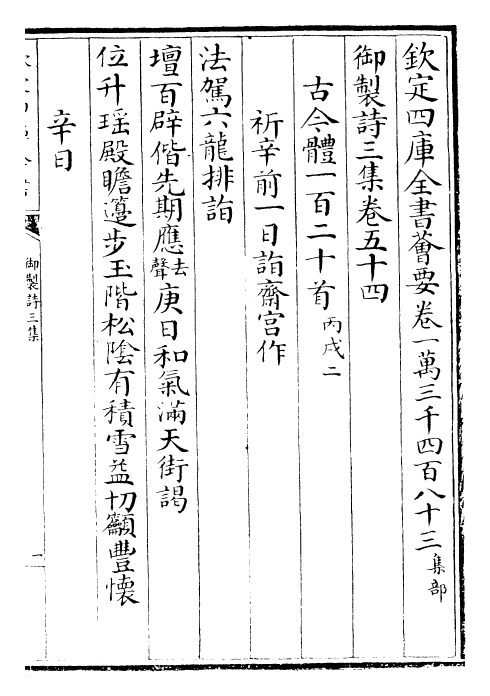 欽定四庫全書薈要卷一萬三千四百八十三集部
御製詩三集卷五十四
古今體一百二十首丙戌二
祈辛前一日詣齋宮作
法駕六龍排詣
壇百辟偕先期應去聲庚日和氣滿天街謁
位升瑶殿瞻籩步玉階松陰有積雪益切籲豐懷
辛日
御製詩三集
一